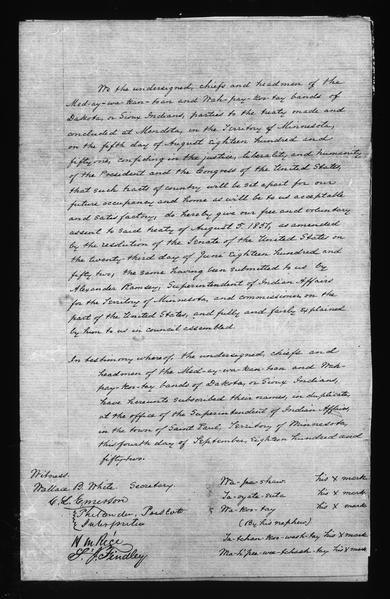 We the undersigned, chiefs and headmen of the
Med-ay-wa-kan-toan and Wah-pay-koo-tay bands of
Dakota, or Sioux Indians, parties to the treaty made and
concluded at Mendota, in the Territory of Minnesota,
on the fifth day of August eighteen hundred and
fifty-one, confiding in the justice, liberality, and humanity
of the President and the Congress of the United States,
that such tracts of country will be set apart for our
future occupancy and home as will be to us acceptable
and satisfactory, do hereby give our free and voluntary
assent to said treaty of August 5. 1851, as amended
by the resolution of the Senate of the United States on
the twenty third day of June eighteen hundred and
fifty two; the same having been submitted to us by
Alexander Ramsey, Superintendent of Indian Affairs
for the Territory of Minnesota, and commissioner on the
part of the United States, and fully and fairly explained
by him to us in council assembled.
In testimony whereof, the undersigned, chiefs and
headmen of the Med-ay-wa-kan-toan and Wah-
pay-koo-tay bands of Dakota, or Sioux Indians,
have hereunto subscribed their names, in duplicate,
at the office of the Superintendent of Indian Affairs,
in the town of Saint Paul, Territory of Minnesota,
this fourth day of September, eighteen hundred and
fifty-two.
Witness.
Wallace B. White Secretary. Wa-pa-shaw. his x mark
Philander Prescott
Interpreter (By his nephew)
H M Rice
his x mark